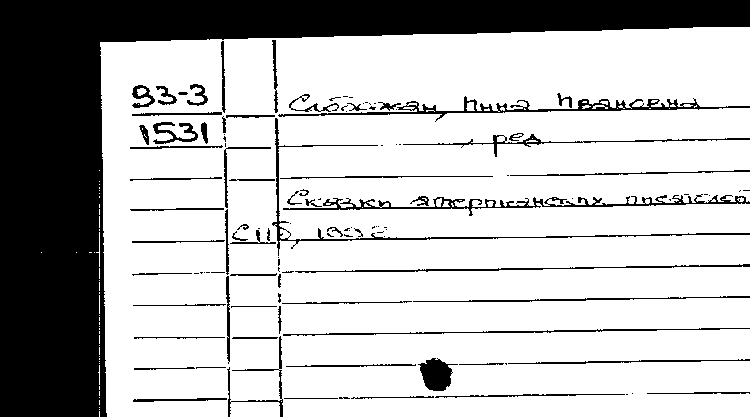 93-3
Сабашкан, Инна Ивановна
1531
, ред
Сказки американских писателей
СПб, 1992